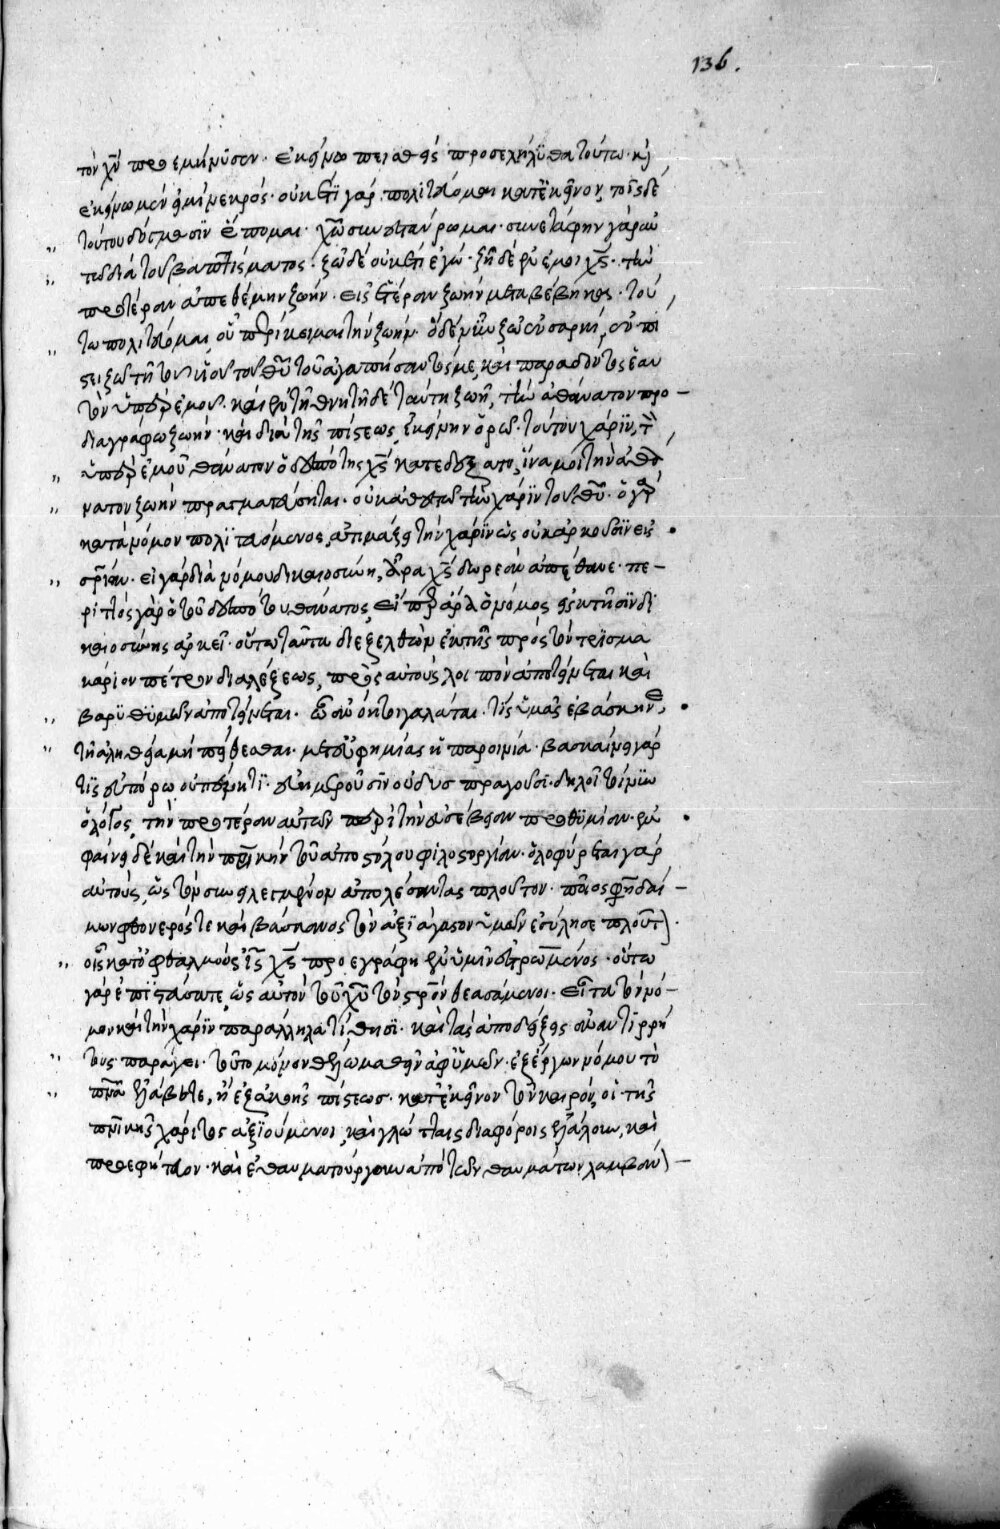 136.
τὸν χν προεμήνυσεν. ἐκείνω πεισθεὶς προσελήλυθα τούτω. καὶ
ἐκείνω μέν εἰμι νεκρός. οὐκέτι γὰρ πολιτεύομαι κατ' ἐκεῖνον, τοῖς δὲ
τούτου δόγμασιν ἕπομαι. χω συνεσταύρωμαι. συνετάφην γὰρ αὐ
τῶ διὰ τοῦ βαπτίσματος. ζῶ δὲ οὐκέτι ἐγώ. ζῆ δὲ ἐν ἐμοὶ χς. τὴν
προτέραν ἀπεθέμην ζωήν. εἰς ἑτέραν ζωὴν μεταβέβηκα. τού
τω πολιτεύομαι, οὗ περίκειμαι τὴν ζωήν. ὃ δὲ νῦν ζῶ ἐν σαρκί, ἐν πί
στει ζῶ τῆ τοῦ υἱοῦ τοῦ θυ τοῦ ἀγαπήσαντός με, καὶ παραδόντος ἑαυ
τὸν ὑπὲρ ἐμοῦ. καὶ ἐν τῆ θνητῆ δὲ ταύτη ζωῆ, τὴν ἀθάνατον προ
διαγράφω ζωήν. καὶ διὰ τῆς πίστεως, ἐκείνην ὁρῶ. τούτου χάριν, τὸν
ὑπὲρ ἐμοῦ θάνατον ὁ δεσπότης χς κατεδέξατο, ἵνα μοι τὴν ἀθά
νατον ζωὴν πραγματεύσηται. οὐκ ἀθετῶ τὴν χάριν τοῦ θυ. ὁ γὰρ
κατὰ νόμον πολιτευόμενος, ἀτιμάζει τὴν χάριν ὡς οὐκ ἀρκοῦσαν εἰς
σρίαν. εἰ γὰρ διὰ νόμου δικαιοσύνη, ἄρα χς δωρεὰν ἀπέθανε. πε
ριττὸς γὰρ ὁ τοῦ δεσπότου θάνατος, εἴπερ ἄρα ὁ νόμος εἰς κτῆσιν δι
καιοσύνης ἀρκεῖ. οὕτω ταῦτα διεξελθὼν ἐκ τῆς πρὸς τὸν τρισμα
κάριον πέτρον διαλέξεως, πρὸς αὐτοὺς λοιπὸν ἀποτείνεται καὶ
βαρυθύμων ἀποτείνεται. ὦ ἀνόητοι γαλάται. τίς ὑμᾶς ἐβάσκηνε
τῆ ἀληθεία μὴ πείθεσθαι. μετ' εὐφημίας ἡ παροιμία. βασκαίνει γάρ
τις εὐπόρω οὐ πένητι. εὐημεροῦσιν οὐ δυσπραγοῦσι. δηλοῖ τοίνυν
ὁ λόγος, τὴν προτέραν αὐτῶν περὶ τὴν εὐσέβειαν προθυμίαν. ἐμ
φαίνει δὲ καὶ τὴν πρικὴν τοῦ ἀποστόλου φιλοστοργίαν. ὀλοφύρεται γὰρ
αὐτούς, ὡς τὸν συνειλεγμένον ἀπολέσαντας πλοῦτον. ποῖος φησὶ δαί
μων φθονερός τε καὶ βάσκανος τὸν ἀξιάγαστον ὑμῶν ἐσύλησε πλοῦτον.
οἷς κατ' ὀφθαλμοὺς ις χς προεγράφη ἐν ὑμῖν ἐστρωμένος. οὕτω
γὰρ ἐπιστεύσατε, ὡς αὐτὸν τοῦ χυ τὸν στρὸν θεασάμενοι. εἶτα τὸν νό
μον καὶ τὴν χάριν παράλληλα τίθησι. καὶ τὰς ἀποδείξεις ἀναντιρρή
τους παράγει. τοῦτο μόνον θέλω μαθεῖν ἀφ' ὑμῶν. ἐξ ἔργων νόμου τὸ
πνα ἐλάβετε, ἢ ἐξ ἀκοῆς πίστεως. κατ' ἐκεῖνον τὸν καιρόν, οἱ τῆς
πνικῆς χάριτος ἀξιούμενοι, καὶ γλώτταις διαφόροις ἐλάλουν, καὶ
προεφήτευον. καὶ ἐθαυματούργουν ἀπὸ τῶν θαυμάτων λαμβάνον